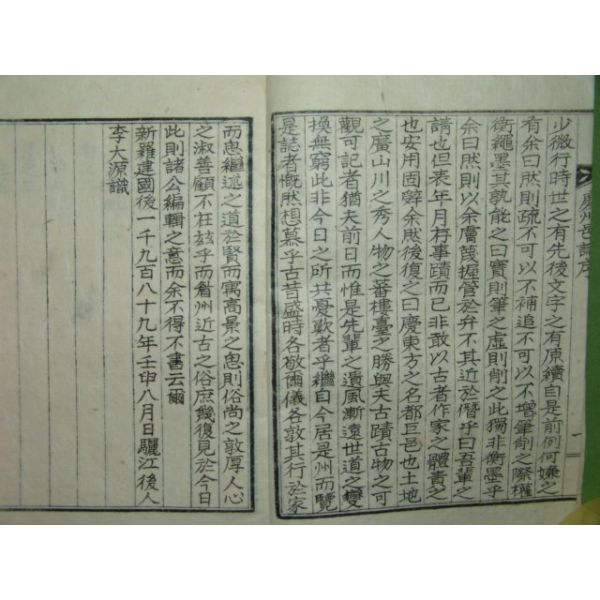 慶州邑誌序
一
少微行時世之有先後文字之有原續自是前例何嫌之
有余曰然則疏不可以不補追不可以不增筆削之際權
衡繩墨其孰能之曰實則筆之虛則削之此獨非衡墨乎
余曰然則以余膚蔑握管於弁不其近於僭乎曰吾輩之
請也但表年月材事蹟而已非敢以古者作家之體責之
也安用固辭余然後復之曰慶東方之名都巨邑也土地
之廣山川之秀人物之蕃樓臺之勝與夫古蹟古物之可
觀可記者猶夫前日而惟是先輩之遺風漸遠世道之變
換無窮此非今日之所共憂歎者乎繼自今居是州而覽
是誌者慨然想慕乎古昔盛時各敬爾儀各敦其行於家
而思繼述之道於賢而寓高景之思則俗尚之敦厚人心
之淑善顧不在玆乎而舊州近古之俗庶幾復見於今日
此則諸公編輯之意而余不得不書云爾
新羅建國後一千九百八十九年壬申八月日驪江後人
李大源識